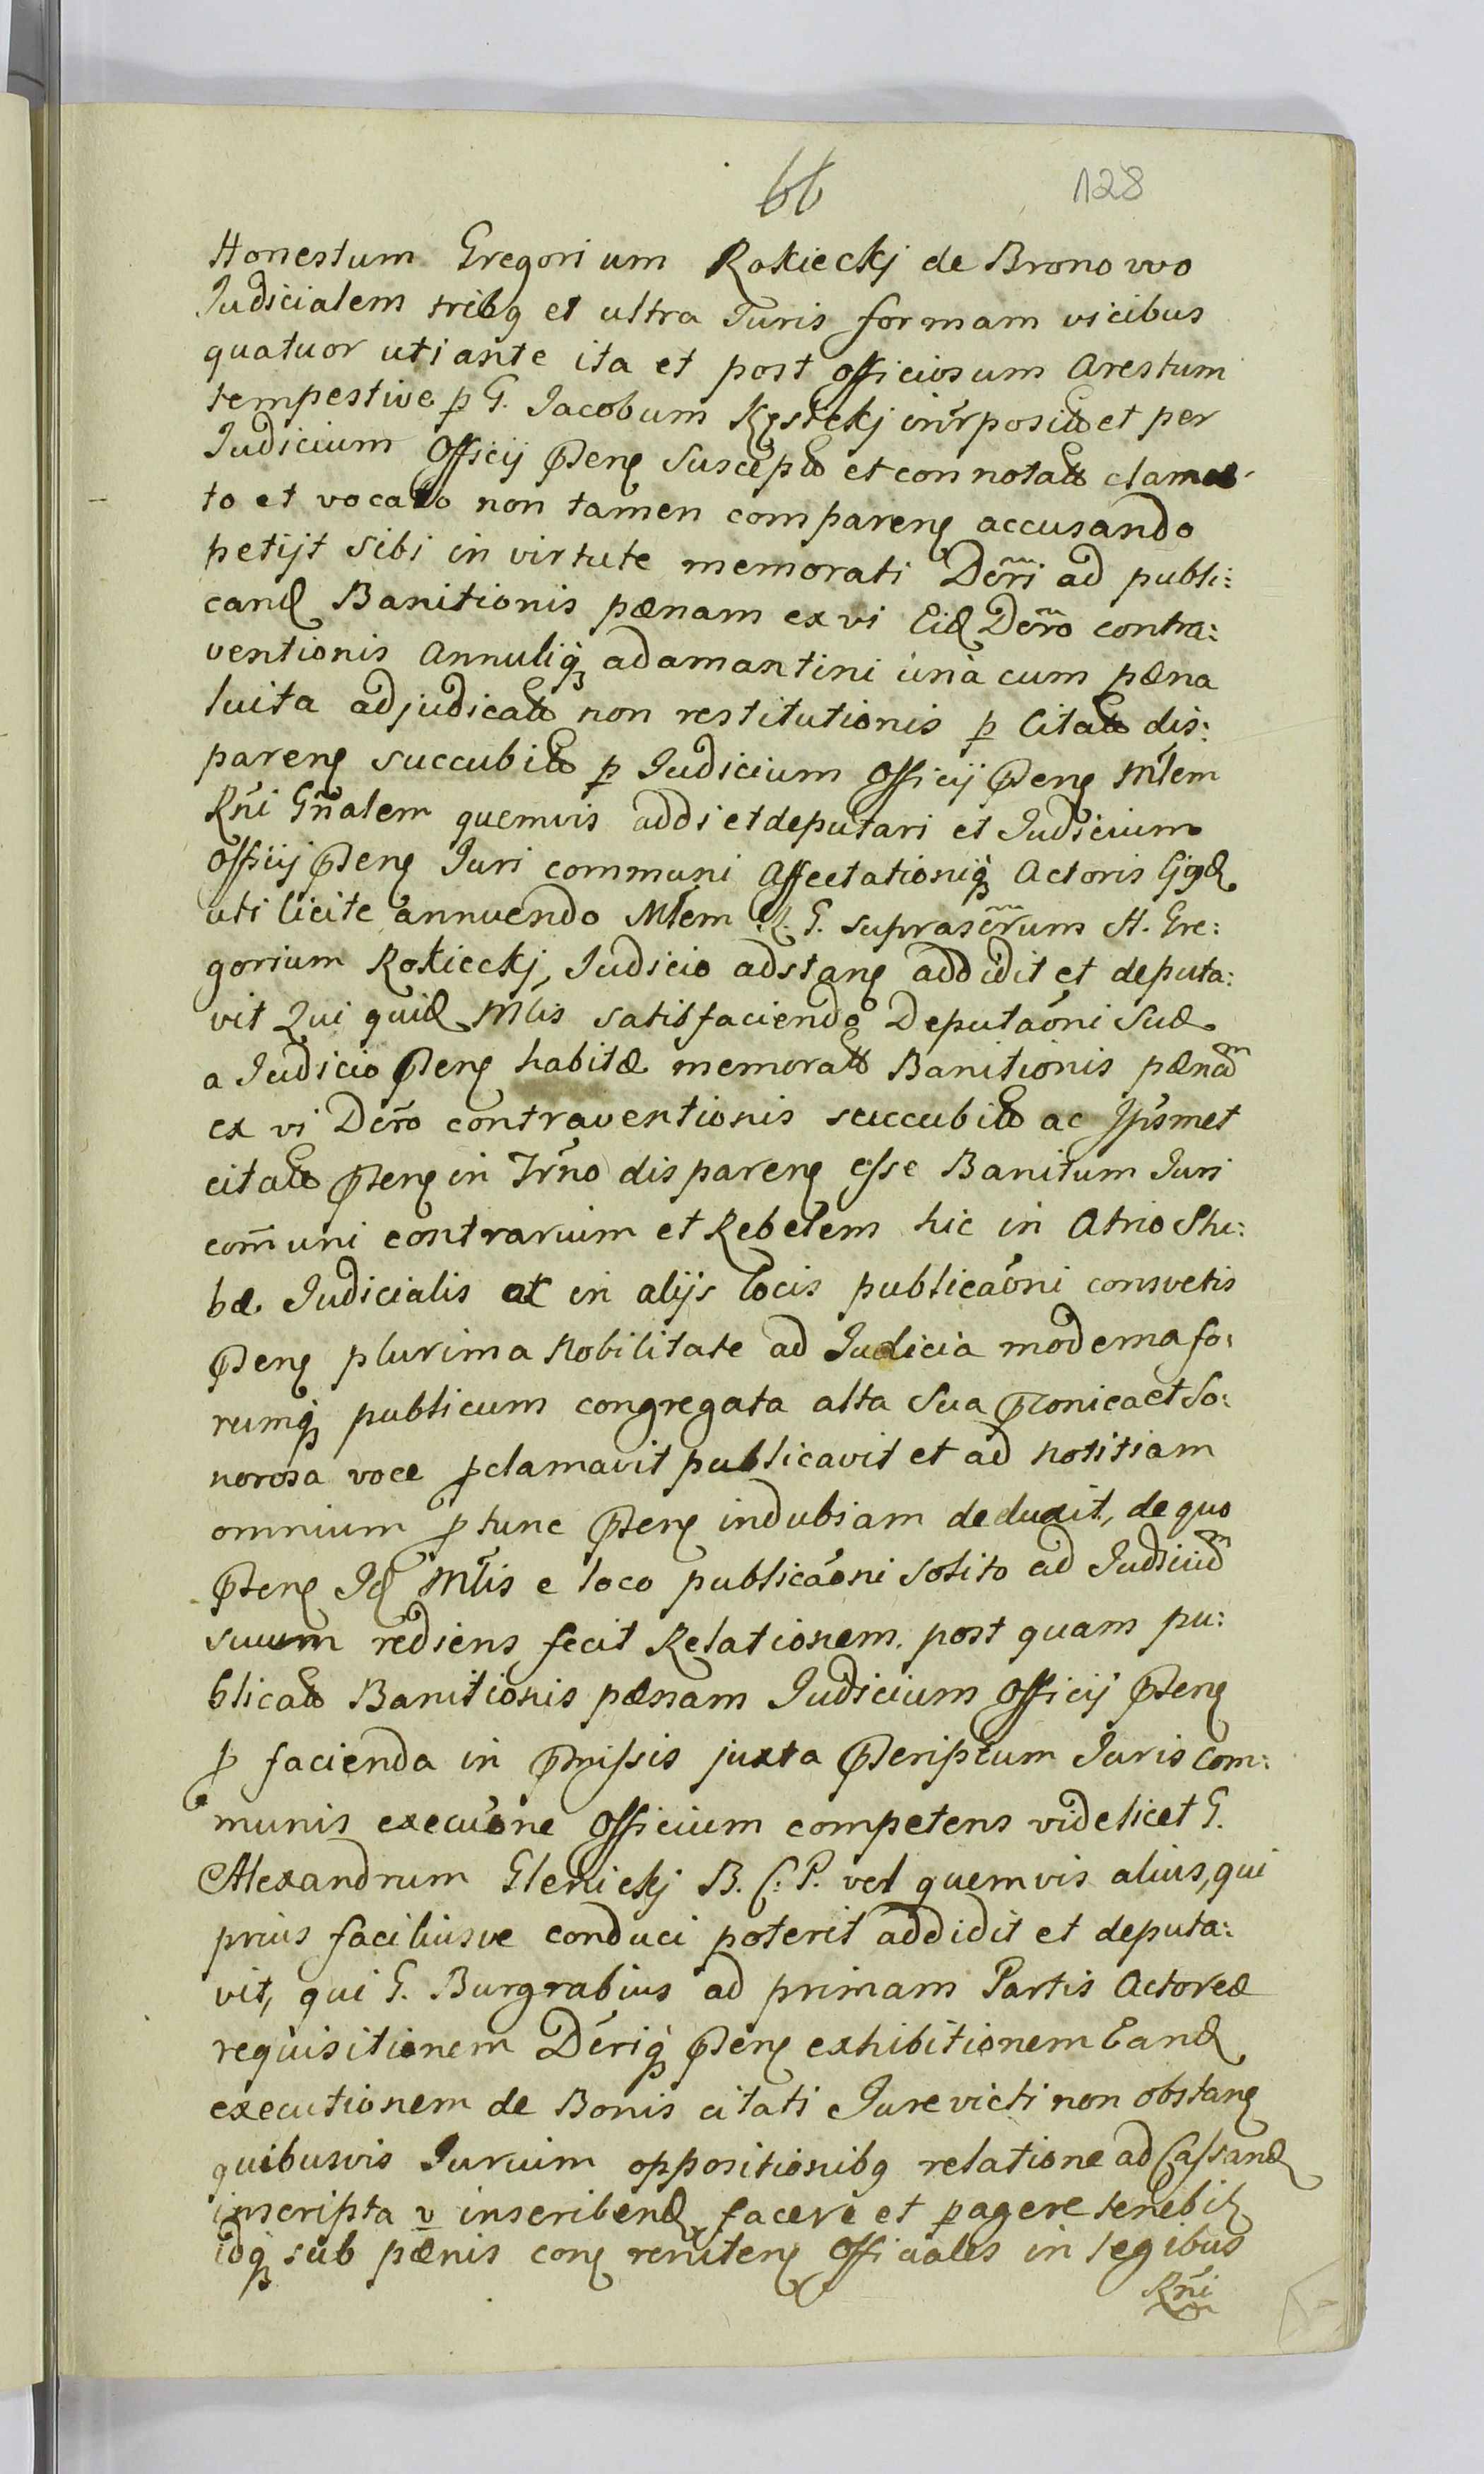 66
128
Honestum Gregorium Rokieckj de Bronowo
Judicialem tribꝯ et ultra Juris formam vicibus
quatuor uti ante ita et post officiosum Arestum
tempestive ꝑ G. Jacobum et per
Judicium Officij Pñtens et
to et vocato non tamen comparenς accusando
petijt sibi in virtute memorati Dcr̃i ad publi:
cand Banitionis pænam ex vi Eid Dcr̃o contra:
ventionis Annuliq̨ adamantini una cum pæna
luita non restitutionis ꝑ dis:
parenς ꝑ Judicium Officij P̃tenς Mtem
Rñi Gñalem quemvis addi et deputari et Judicium
Officij P̃tenς Juri communi Affectationiq̨ Actoris
uti licite annuendo Mtem R. G. suprascr̃um H. Gre:
gorium Rokieckj, Judicio adstanς addidit et deputa:
vit Qui quid Mtis satisfaciendo Deputaõni Suæ
a Judicio P̃tenς habitæ Banitionis pænã
ex vi Dcr̃o contraventionis ac Jpsmet
P̃tenς in Tr̃no disparenς esse Banitum Juri
com̃uni contrarium et Rebelem hic in Atrio Stu:
bæ Judicialis at in alijs locis publicaõni consvetis
P̃tenς plurima Nobilitate ad Judicia moderna fo:
rumq̨ publicum congregata alta Sua et So:
norosa voce ꝓclamavit publicavit et ad notitiam
omnium ꝓ tunc P̃tenς indubiam deduxit, de quo
P̃tenς Id Mtis e loco publicaõni solito ad Judiciũ
suum rediens fecit Relationem. post quam pu:
Banitionis pænam Judicium Officij P̃tenς
ꝓ facienda in P̃missis juxta P̃scriptum Juris com:
munis execuõne Officium competens videlicet G.
Alexandrum Glenickj B. C: P. vel quemvis alius, qui
prius faciliusve conduci poterit addidit et deputa:
vit, qui G. Burgrabius ad primam Partis Actoreæ
requisitionem Dcr̃iq̨ P̃tenς exhibitionem Eand
executionem de Bonis citati Jure victi non obstanς
quibusvis Jurium oppositionibꝯ relatione ad Cassand
inscripta v̲ inscribend facere et ꝑagere tenebit
idq̨ sub pænis conς renitenς Officiales in legibus
Rñi